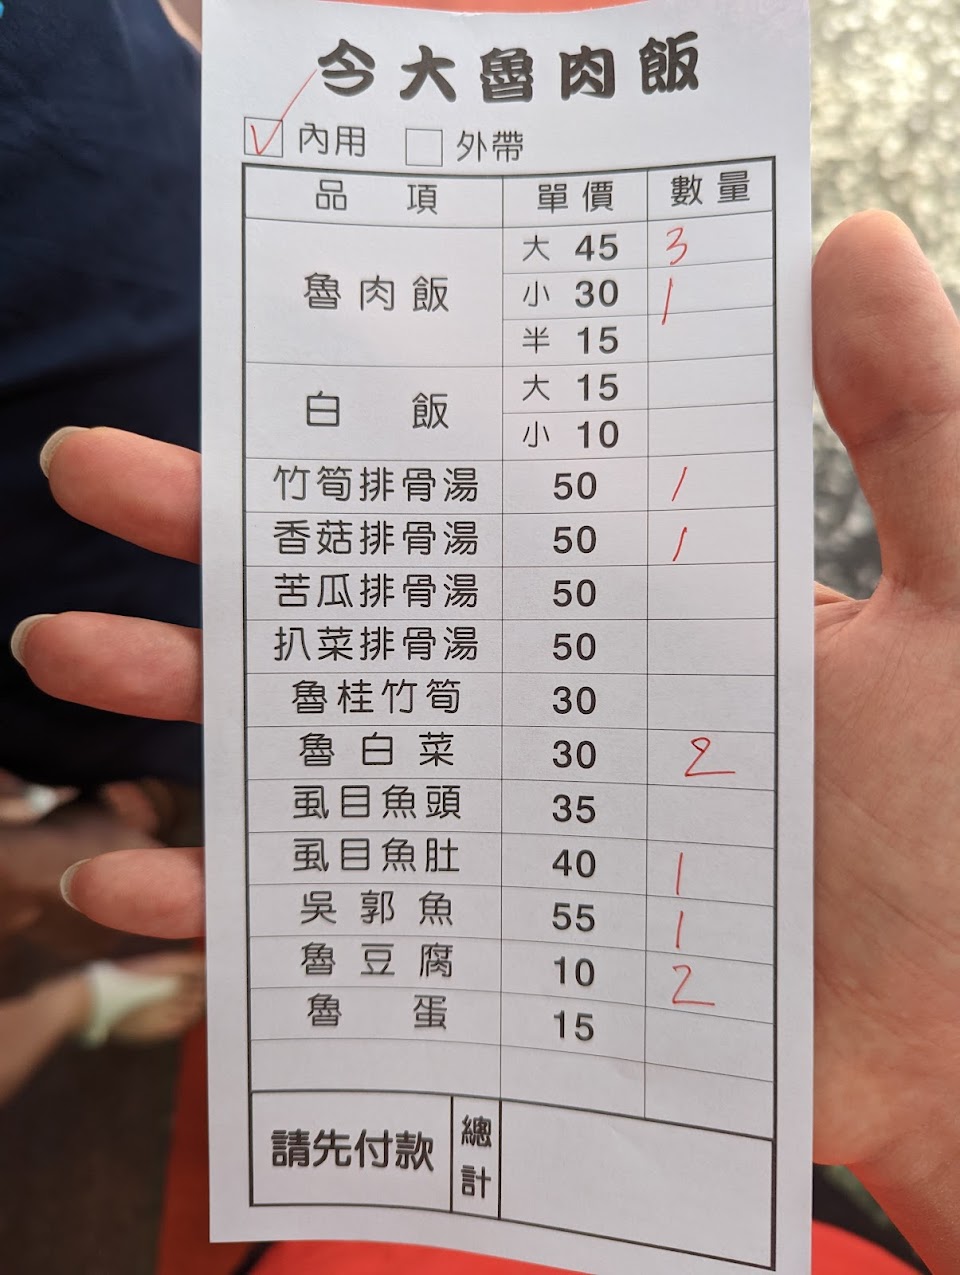 今大魯肉飯
V 內用 外帶
品項 單價 數量
魯肉飯 大 45 3
小 30 1
半 15
白飯 大 15
小 10
竹筍排骨湯 50 1
香菇排骨湯 50 1
苦瓜排骨湯 50
扒菜排骨湯 50
魯桂竹筍 30
魯白菜 30 2
虱目魚頭 35
虱目魚肚 40 1
吳郭魚 55 1
魯豆腐 10 2
魯蛋 15
請先付款 總計